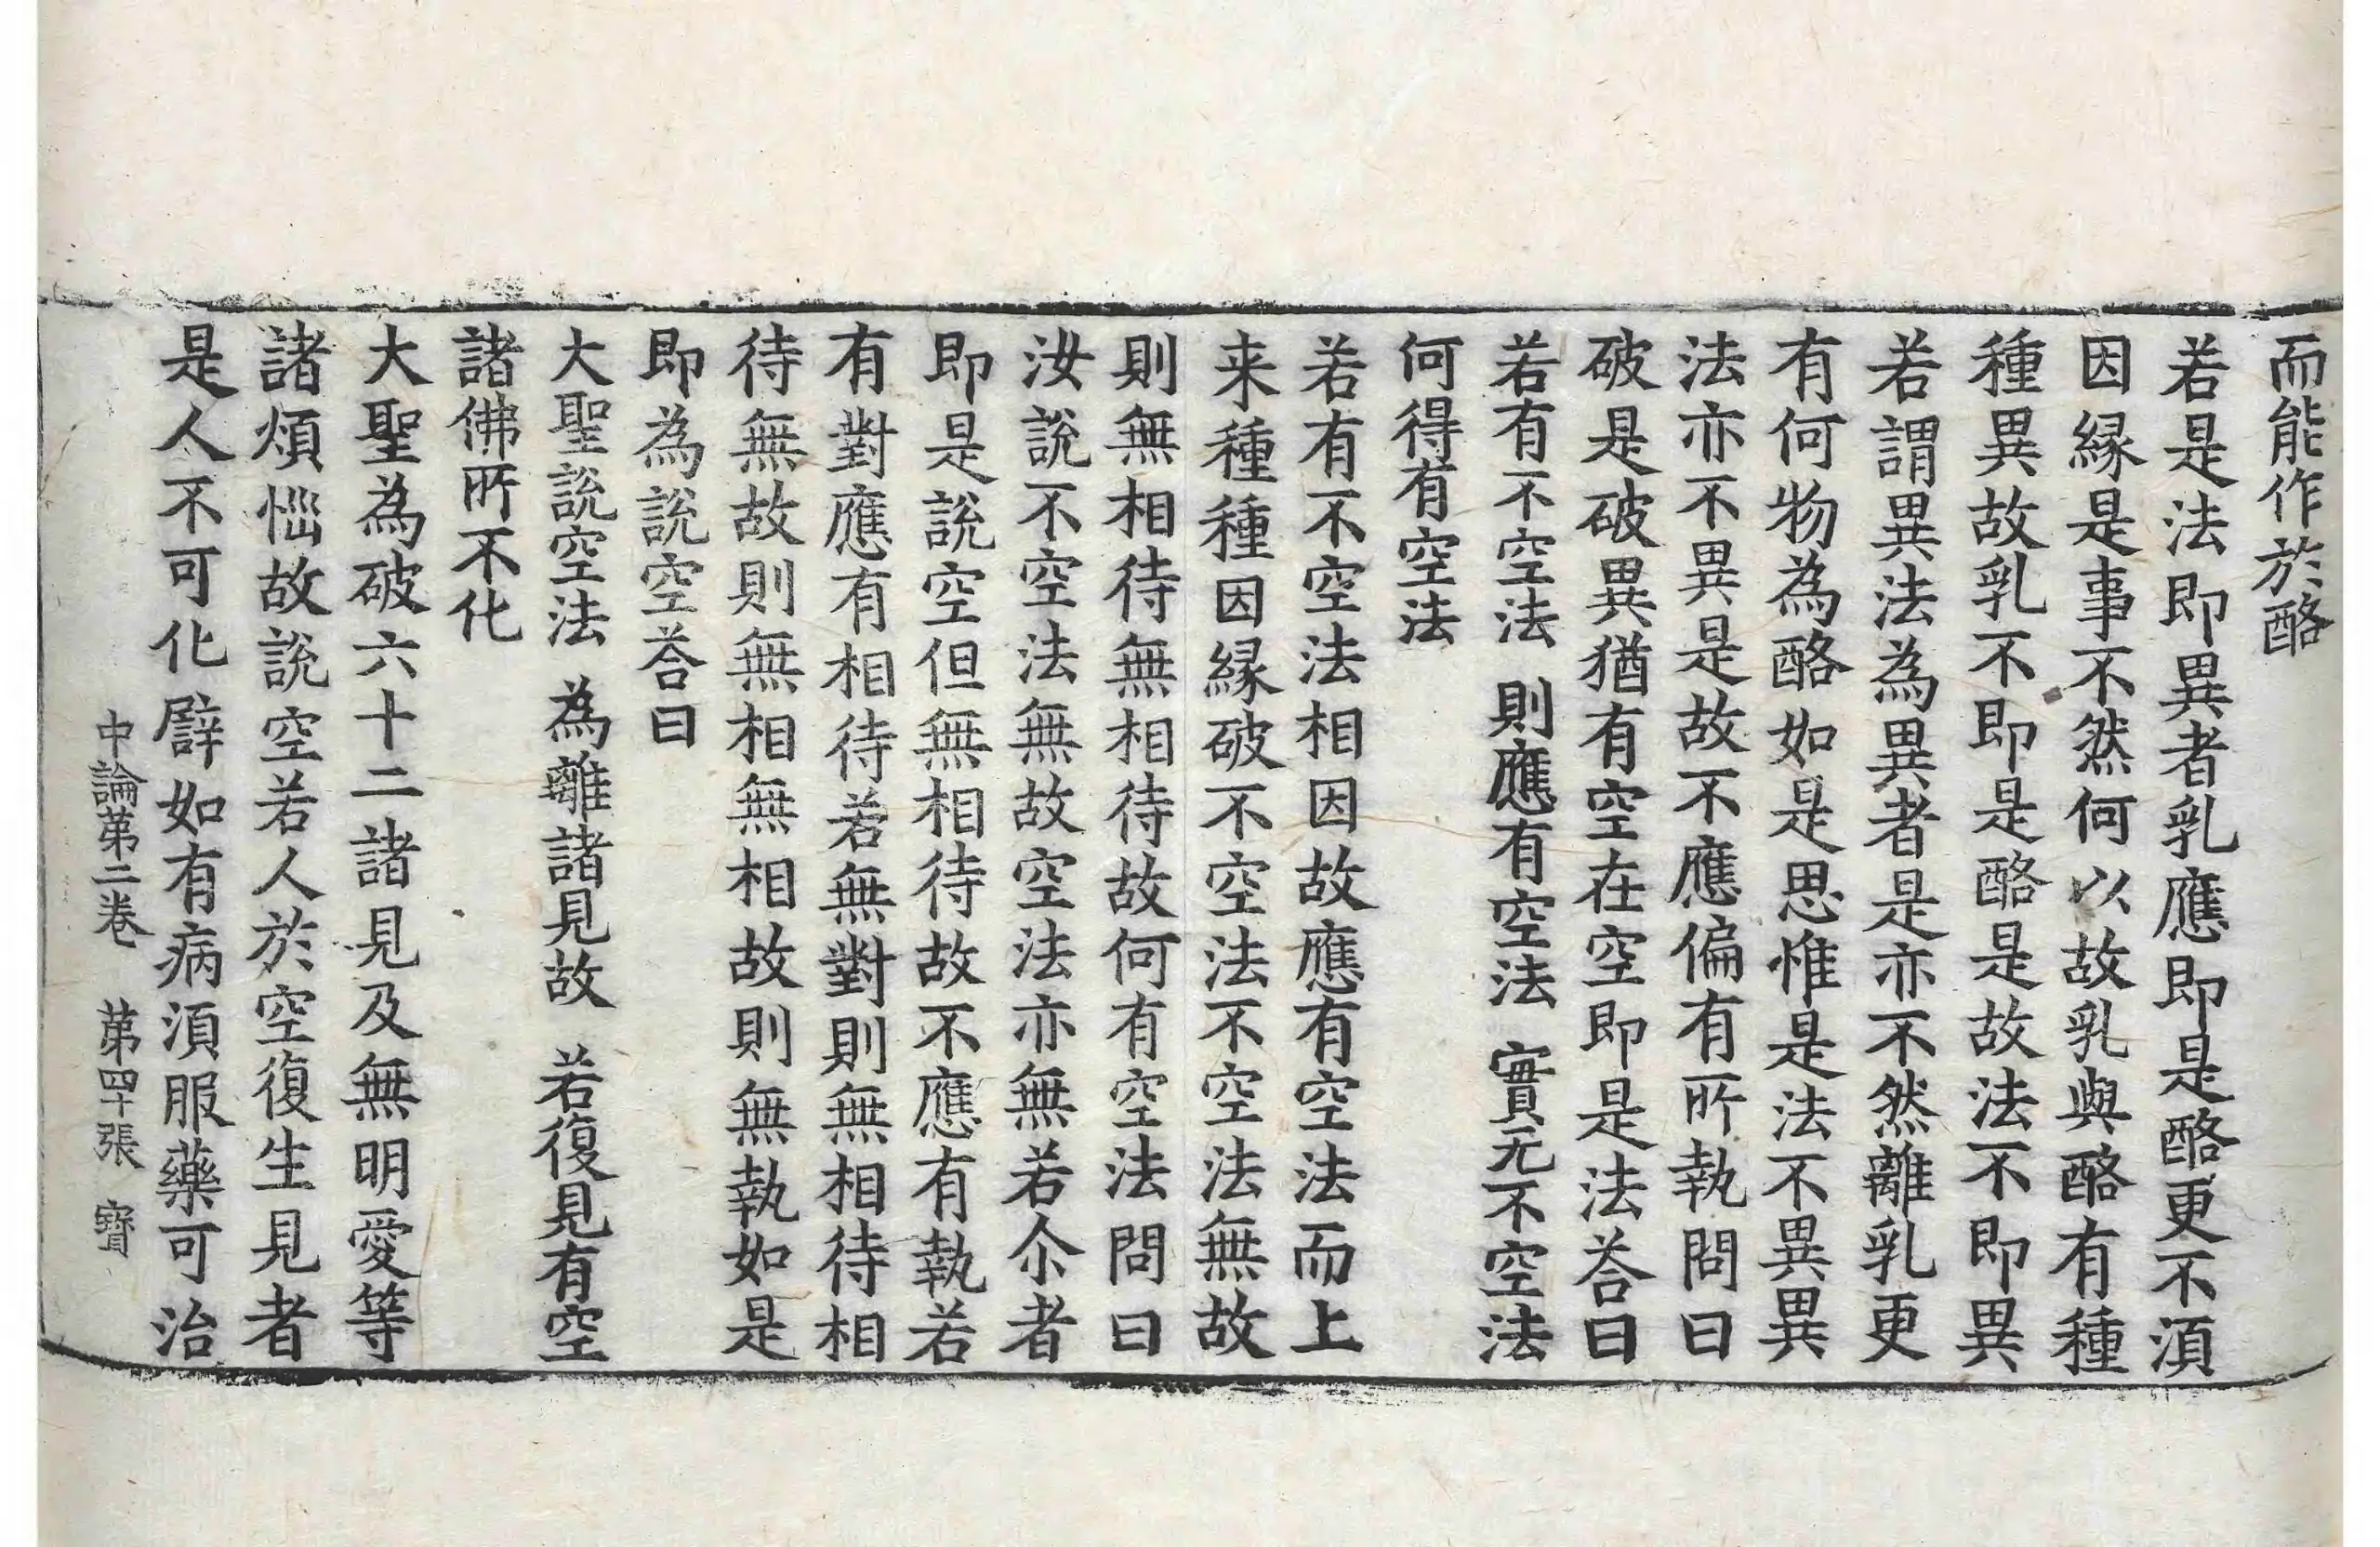 而能作於酪
若是法即異者乳應即是酪更不湏
因縁是事不然何以故乳與酪有種
種異故乳不即是酪是故法不即異
若謂異法為異者是亦不然離乳更
有何物為酪如是思惟是法不異異
法亦不異是故不應偏有所執問曰
破是破異猶有空在空即是法荅曰
若有不空法　則應有空法　實无不空法
何得有空法
若有不空法相因故應有空法而上
来種種因縁破不空法不空法無故
則無相待無相待故何有空法問曰
汝說不空法無故空法亦無若尒者
即是說空但無相待故不應有執若
有對應有相待若無對則無相待相
待無故則無相無相故則無執如是
即為說空荅曰
大聖說空法　為離諸見故　若復見有空
諸佛所不化
大聖為破六十二諸見及無明愛等
諸煩惱故說空若人於空復生見者
是人不可化譬如有病湏服藥可治
中論第二卷　第四十張　寳